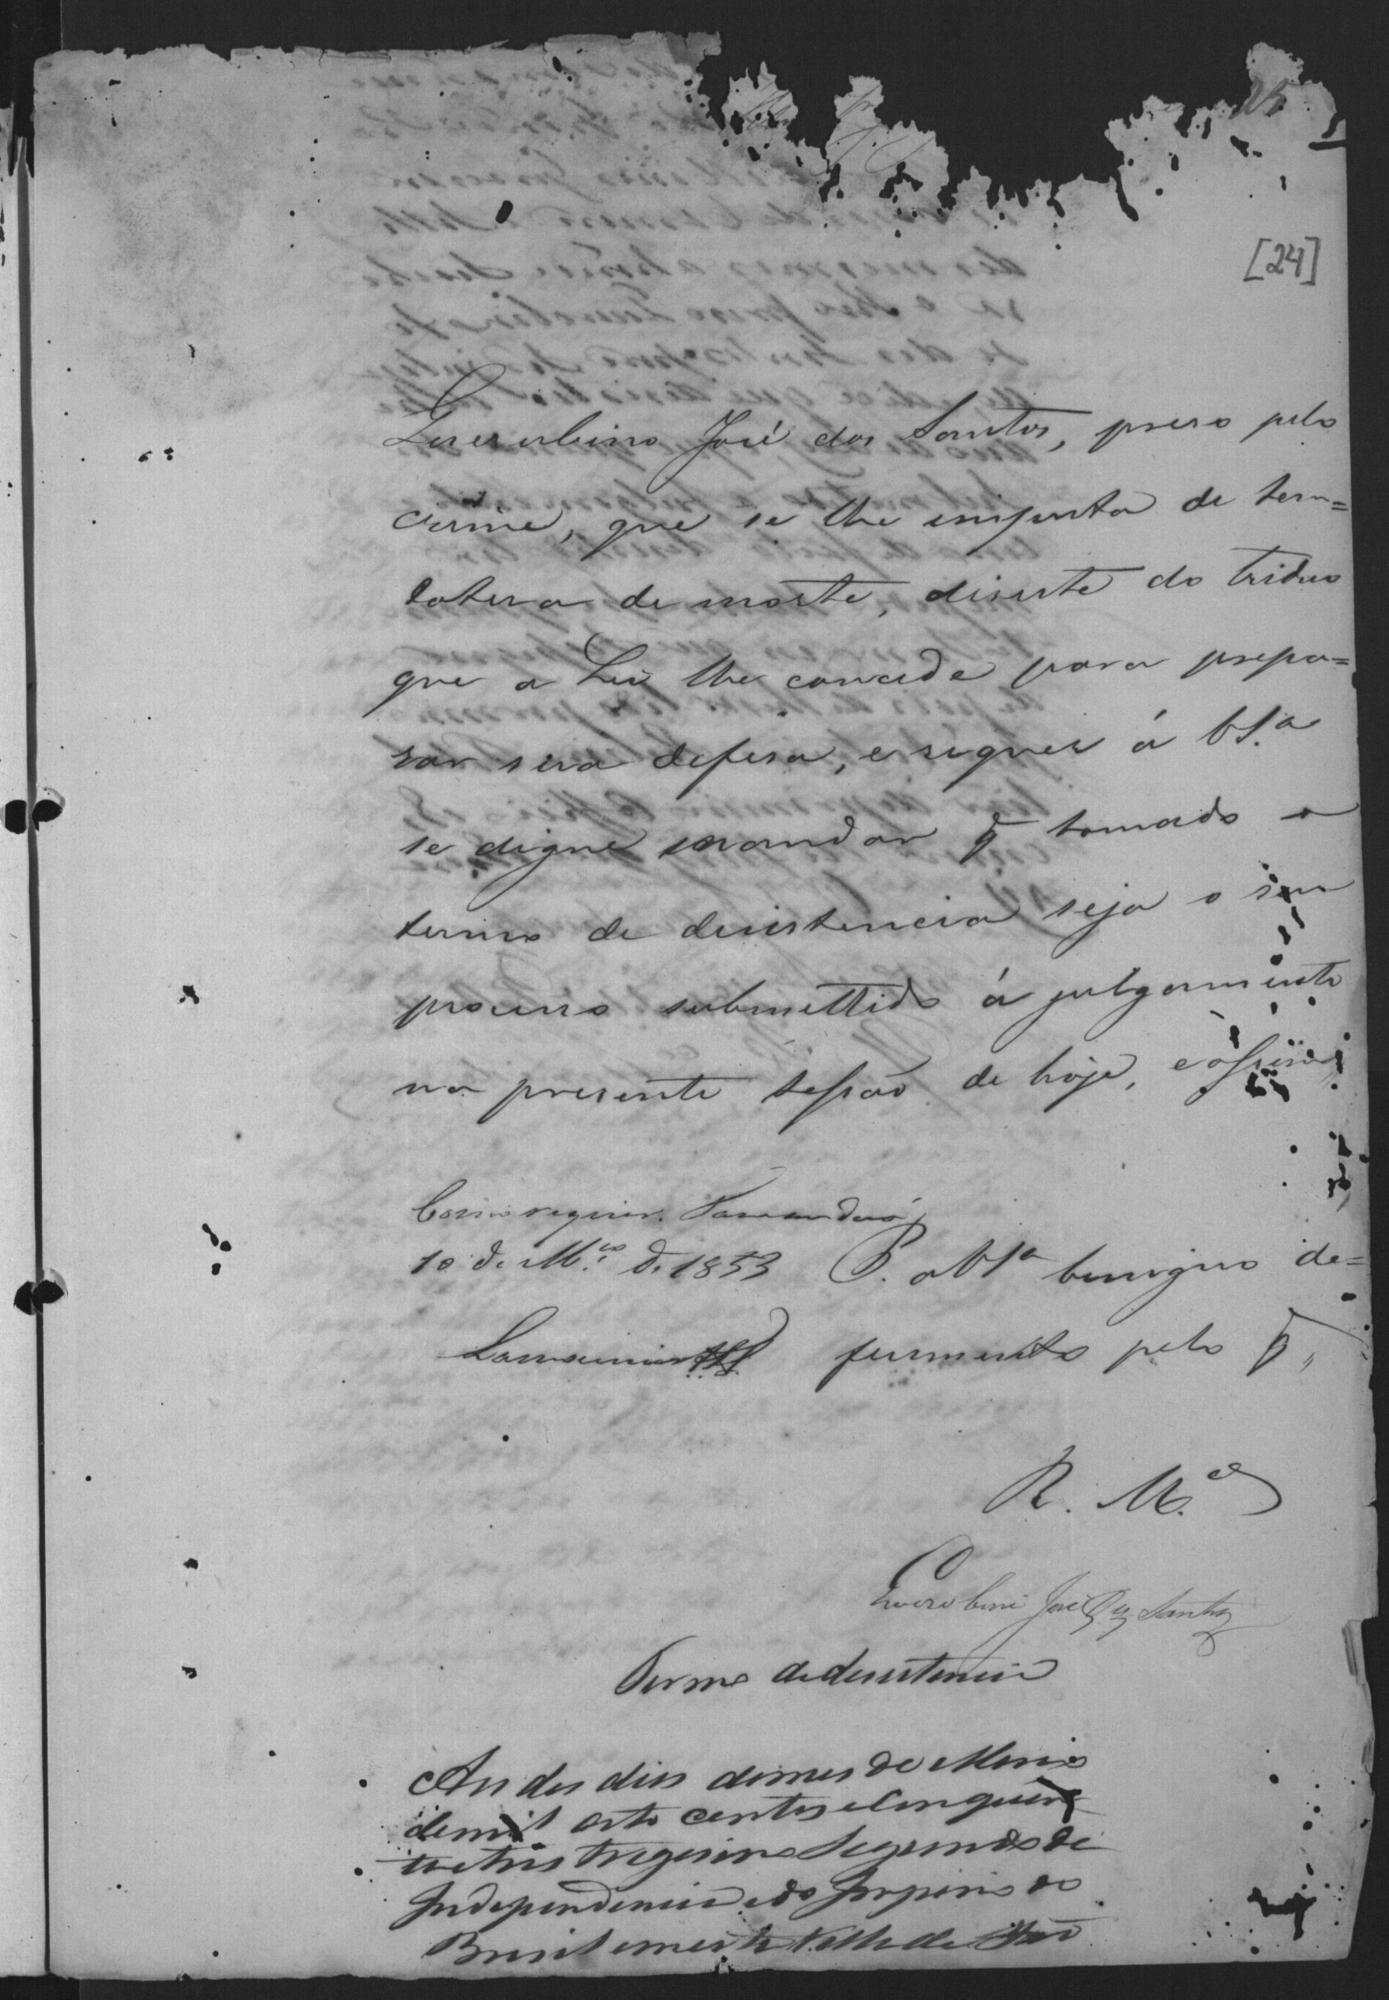 25
[24]
José dos Santos, preso pelo
crime, que se lhe imputa de ten=
tativa de morte, desiste do triduo
que a Lei lhe concede para prepa=
rar sua defesa, e requer á V.S.ª
se digne mandar q tomado o
termo de desistencia seja o seu
processo submettido á julgamento
na presente seſsão de hoje, e aſsim,
Como requer. Tamanduá,
10 de M.ço de 1853 P. a V.S.ª benigno de=
ferimento pelo q,
R. M.ce
José dos Santos
Termo de desistencia
Aos des dias do mes de
de mil oito centos e cincoen
ta e tres trigesimo Segundo da
Independencia e do Imperio do
Brasil nesta Villa de São